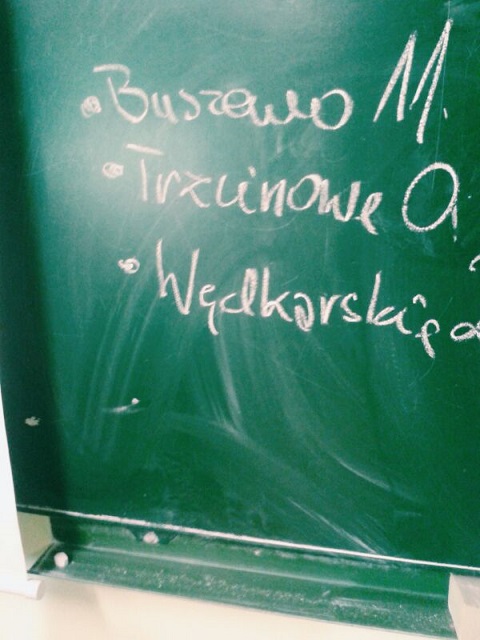 • Buszewo M.
• Trzcinowe O
• Wędkarskie